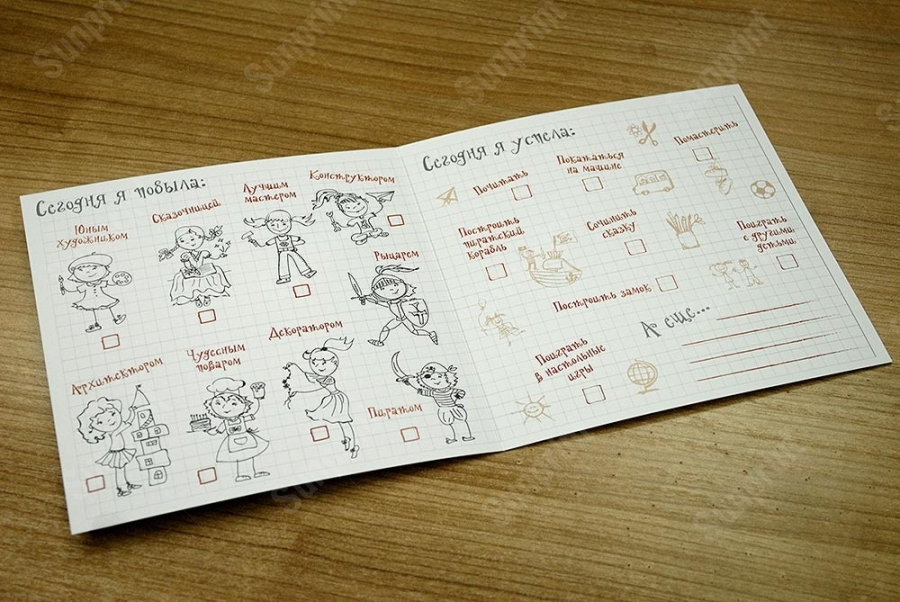 Сегодня я побыла:
Юным
художником
Сказочницей
Лучшим
мастером
Конструктором
Рыцарем
Архитектором
Чудесным
поваром
Декоратором
Пиратом
Сегодня я успела:
Почитать
Покататься
на машине
Помастерить
Построить
пиратский
корабль
Сочинить
сказку
Поиграть
с другими
детьми
Построить замок
Поиграть
в настольные
игры
А еще...
Sunprint
Sunprint
Sunprint
Sunprint
Sunprint
Sunprint
Sunprint